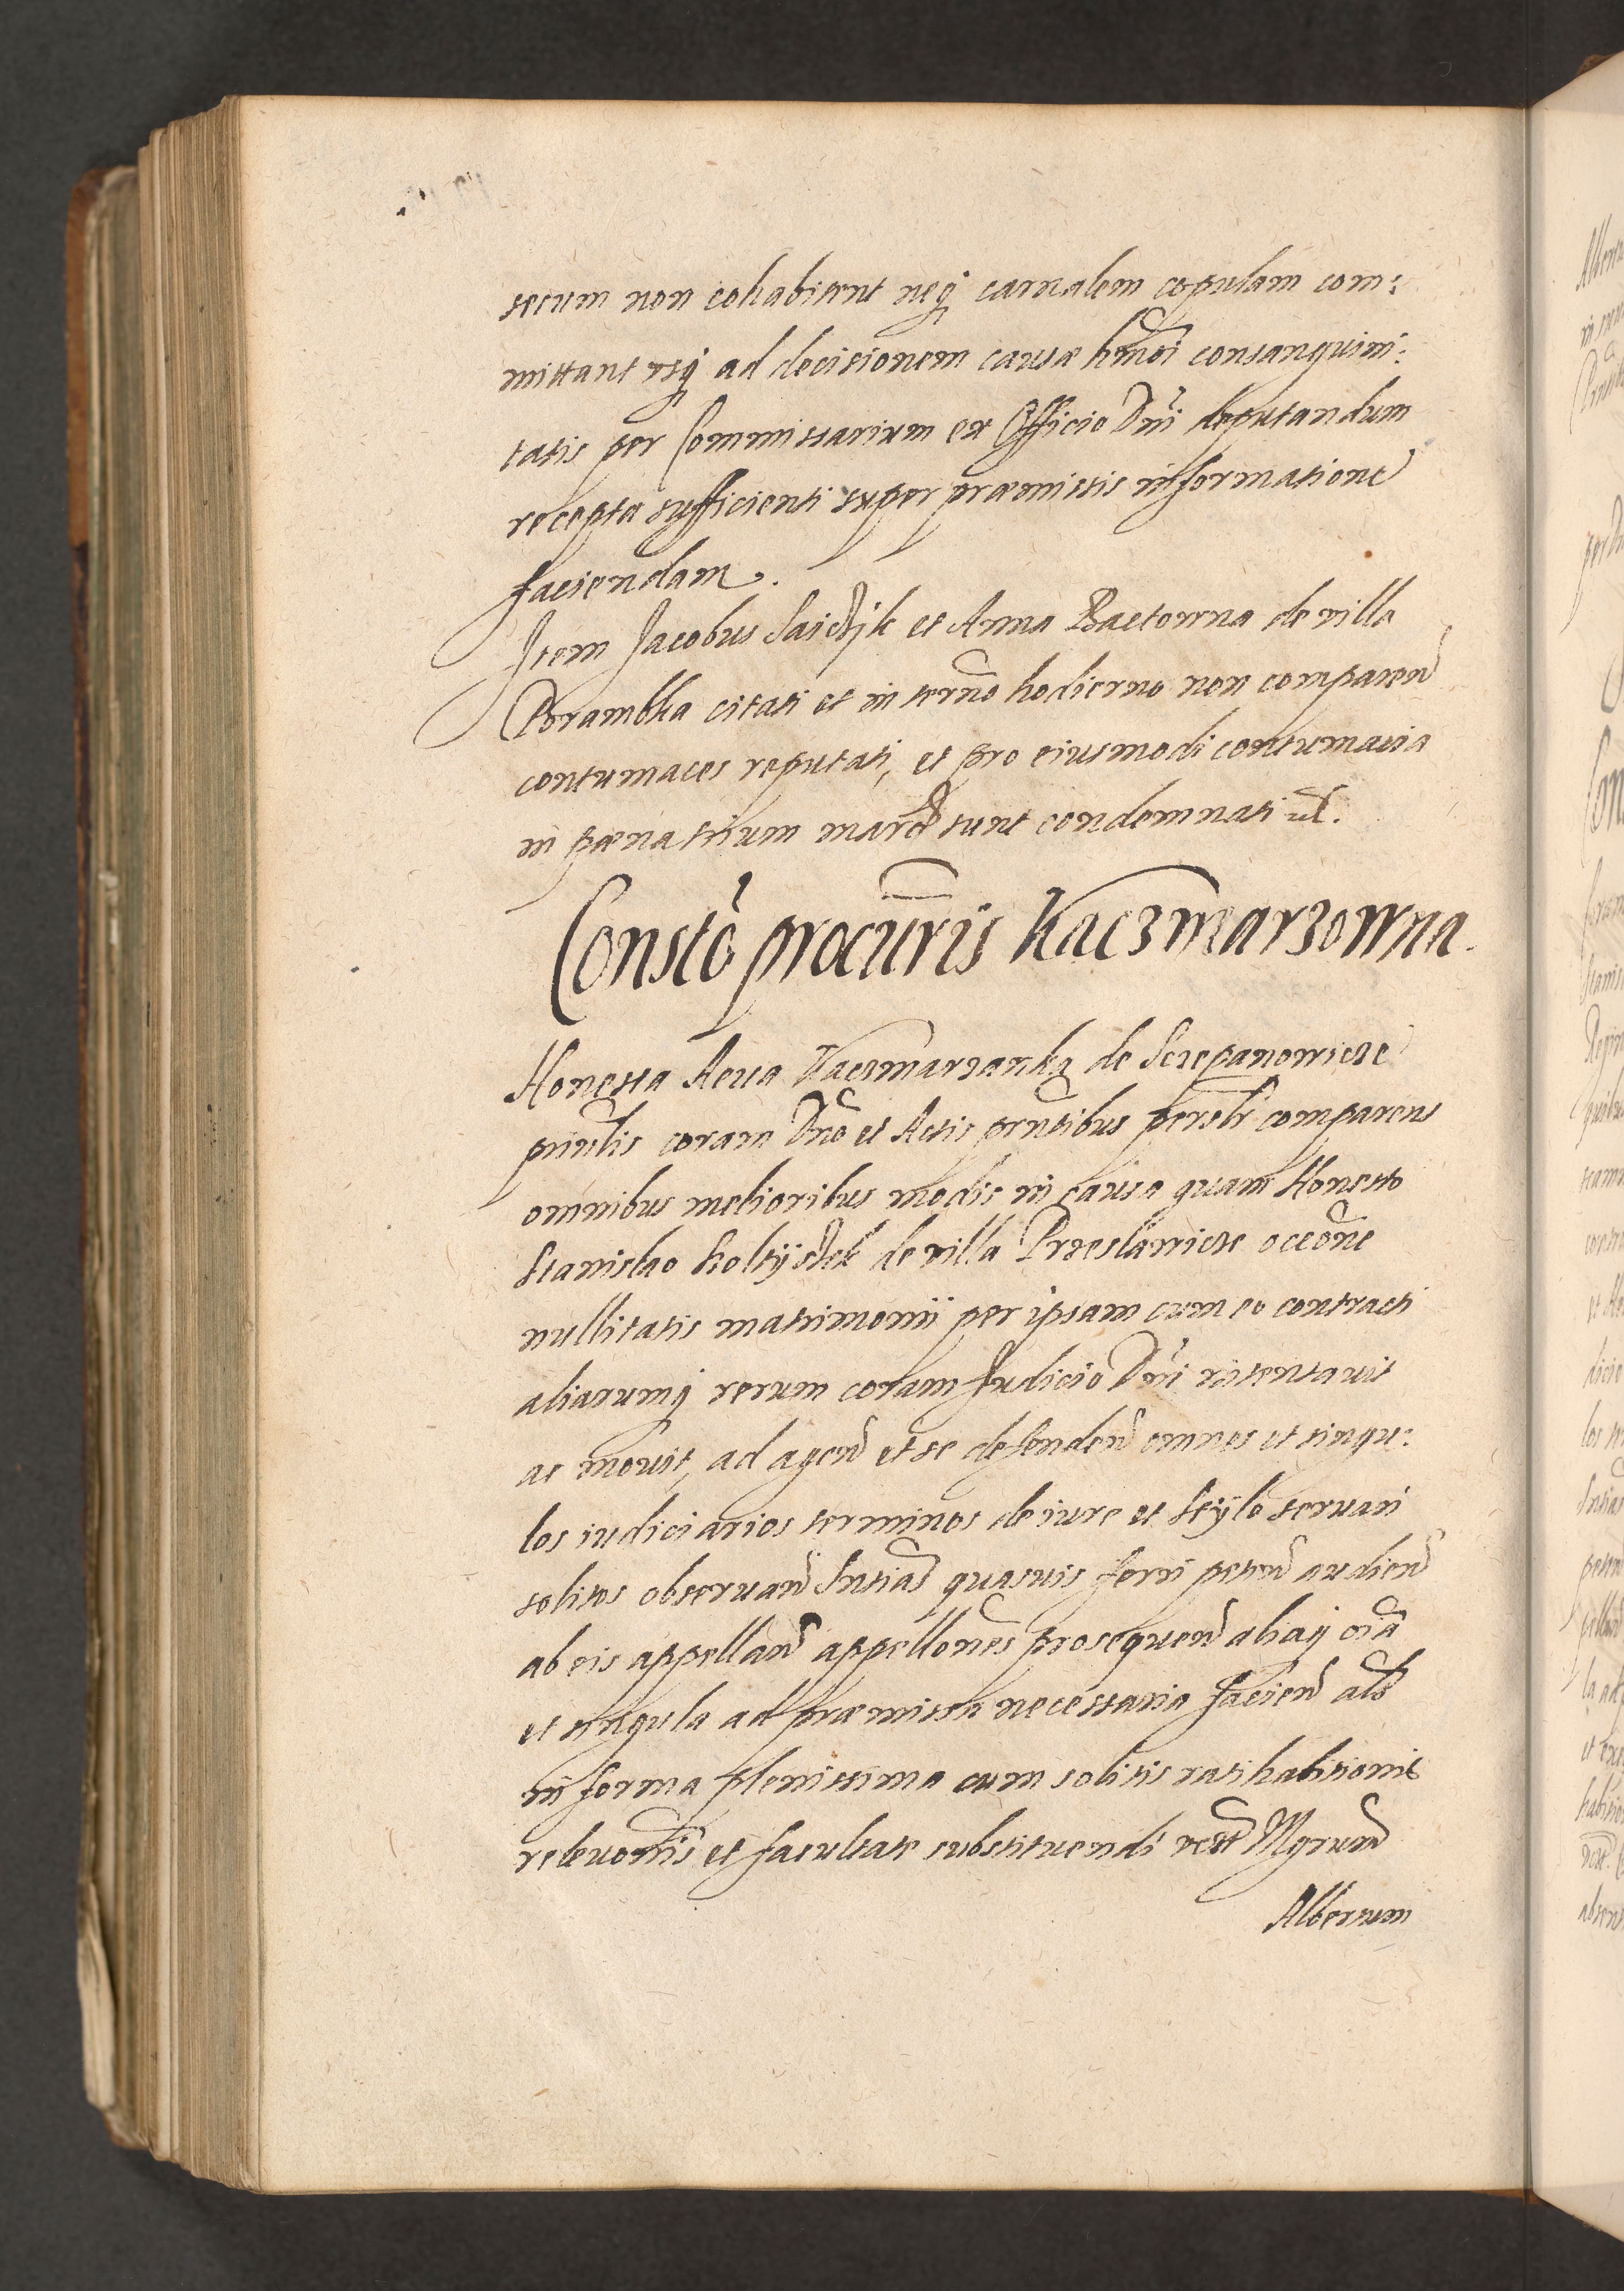 secum non cohabitent neq̃ carnalem copulam com:
mittant vsq̃ ad decisionem causæ hm̃oi consanguini:
tatis per Commissarium ex Officio Dn̄i deputandum
recepta sufficienti super præmissis informatione
faciendam.
Item Jacobus et Anna Bactowna de villa
Porambka citati et in termo hodierno non comparen̄
contumaces reputati, et pro eiusmodi contumacia
in pœna trium marc̄ sunt condemnati ut.
Constō procur̄is Kaczmarzowna.
Honesta Aeua Kaczmarzanka de Sczepanowicze
princ̄lis coram Dn̄o et Actis prn̄tibus persl̄r comparens
omnibus melioribus modis in causa quam Honesto
Stanislao de villa Przeslawicze occōne
nullitatis matrimonii per ipsam cum eo contracti
aliarumq̃ rerum coram Judicio Dn̄i intentauit
ac mouit, ad agen̄ et se defenden̄ omnes et singu:
los iudiciarios terminos de iure et stylo seruari
solitos obseruan̄ Sn̄tias quasuis ferri peten̄ audien̄
ab eis appellan̄ appellōnes prosequen̄ aliaq̃ oīa
et singula ad præmissa necessaria facien̄ als̄
in forma plenissima cum solitis ratihabitionis
releuōnis et facultate substituendi nc̄st Mgrum̄
Albertum